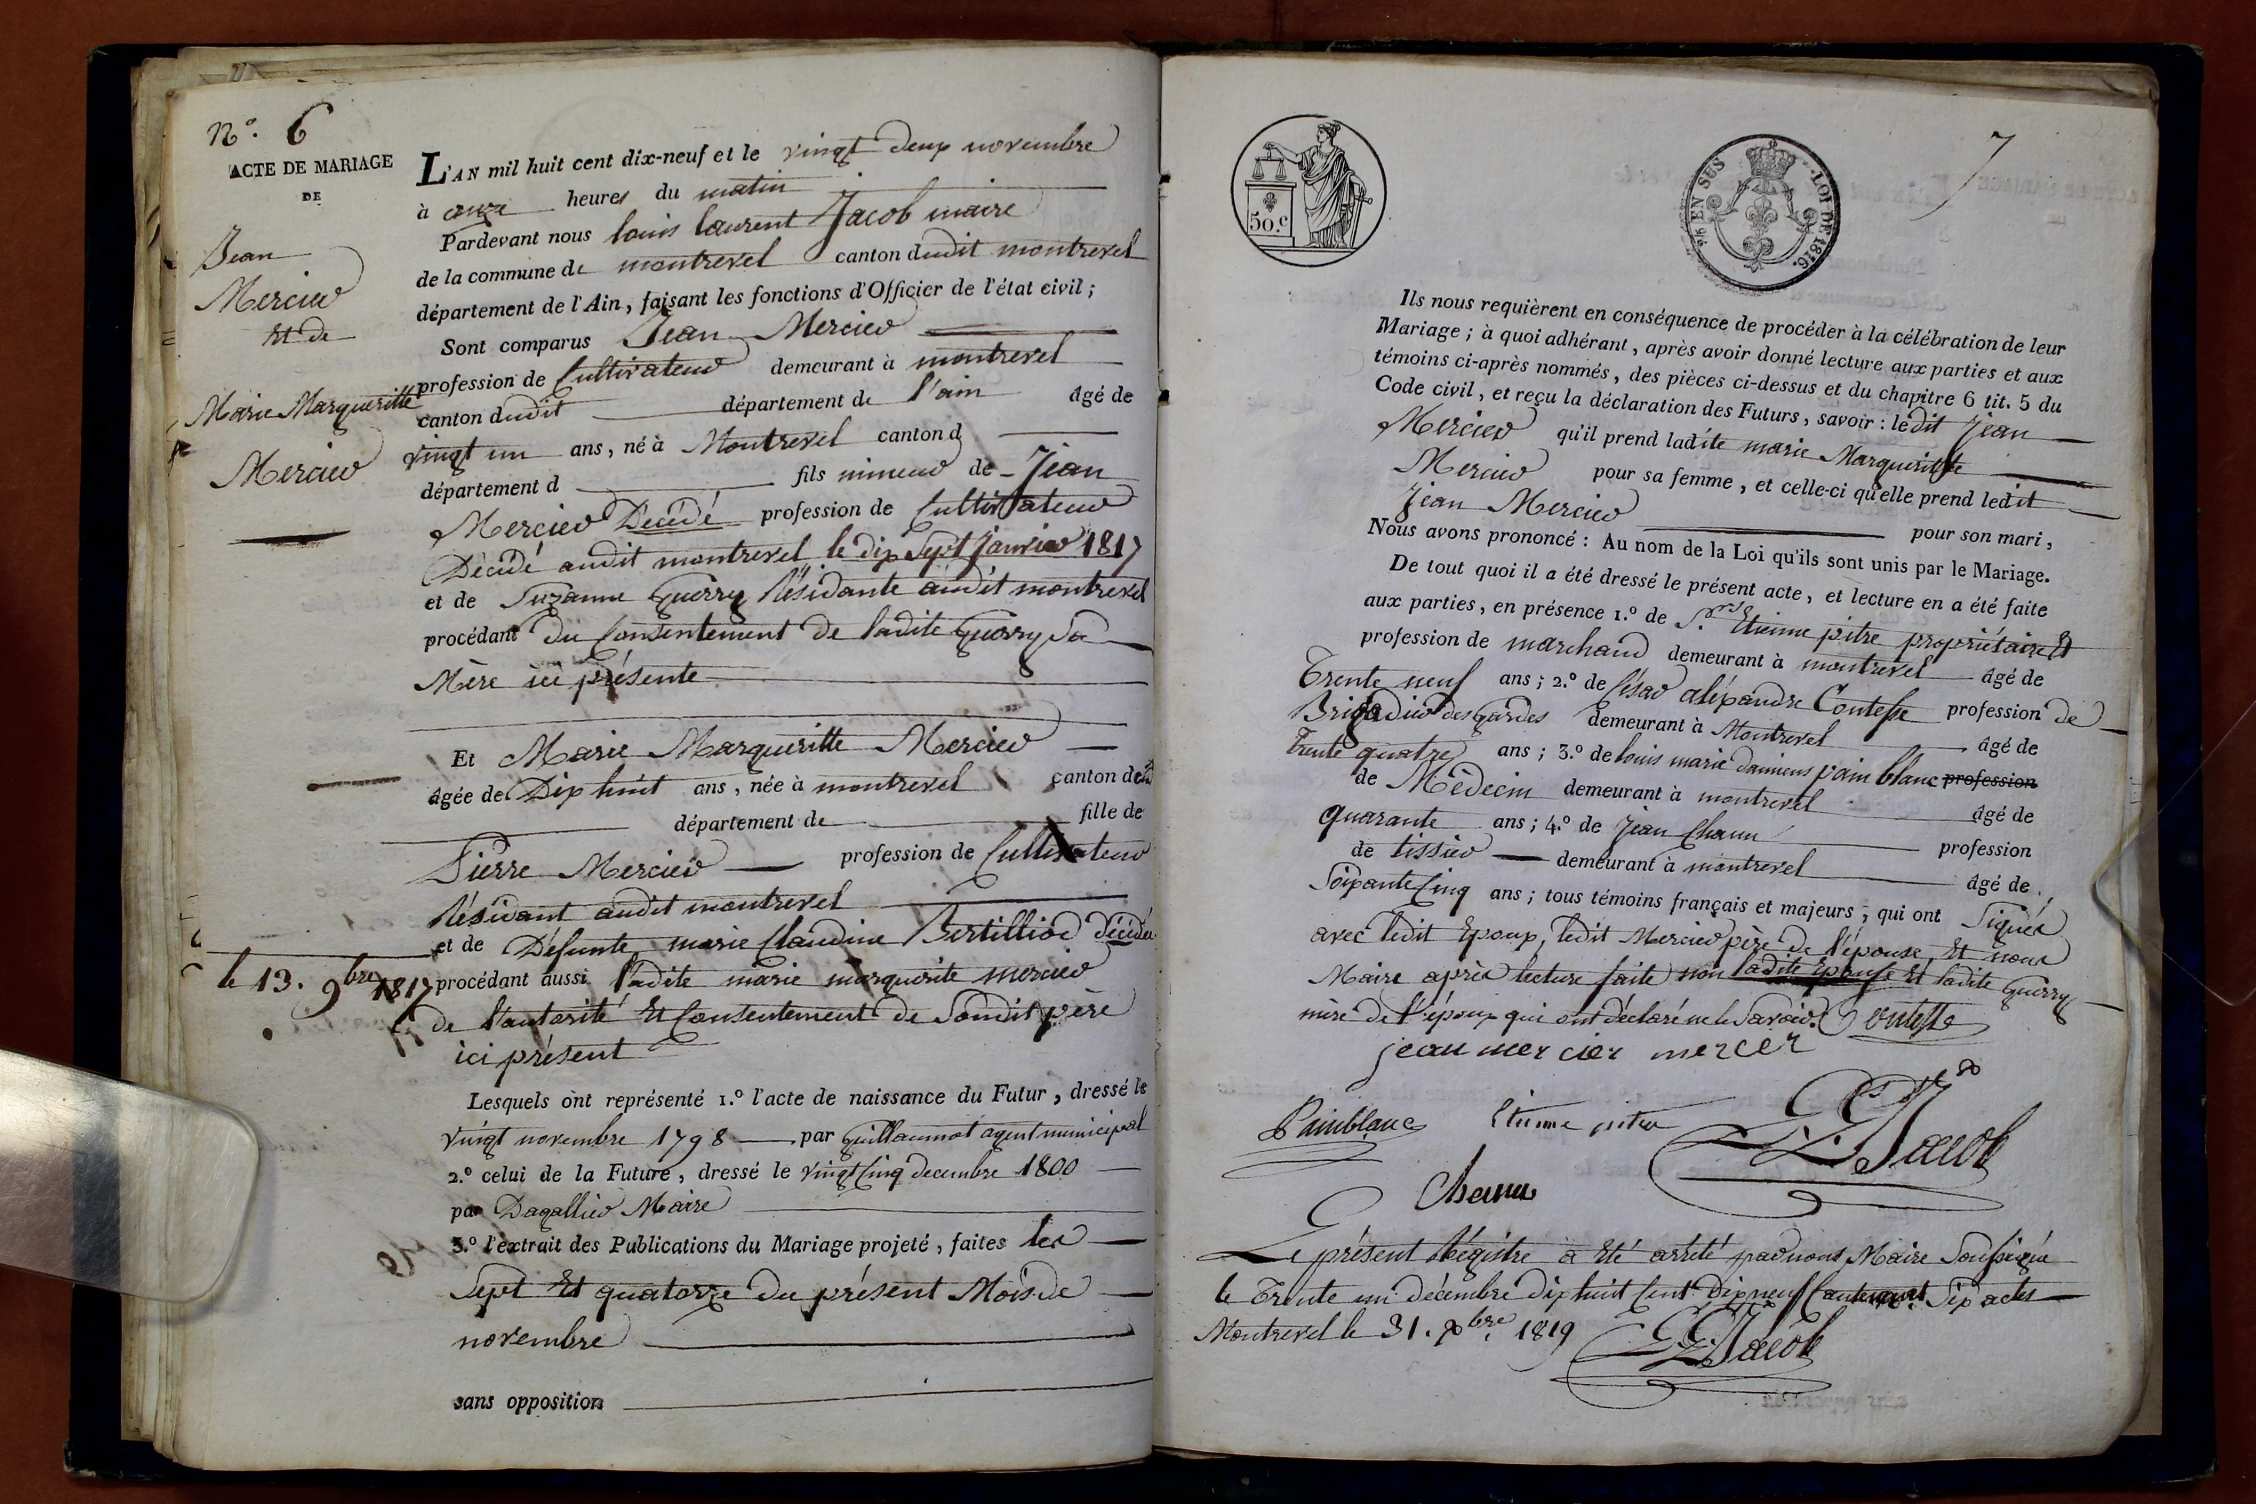 N.º 6
ACTE DE MARIAGE
DE
Jean
Mercier
Et de
Marie Margueritte
Mercier
L'AN mil huit cent dix-neuf et le vingt deux novembre
à onze heures du matin
Pardevant nous louis laurent Jacob maire
de la commune de montrevel canton dudit montrevel
département de l'Ain, faisant les fonctions d'Officier de l'état civil;
Sont comparus Jean Mercier
profession de Cultivateur demeurant à montrevel
canton dudit département de l'ain âgé de
vingt un ans, né à Montrevel canton d
département d fils mineur de Jean
Mercier Décédé profession de Cultivateur
Décédé audit montrevel le dix Sept Janvier 1817
et de Suzanne Guerry Résidante audit montrevel
procédant du Consentement de ladite Guerry Sa
Mère ici présente
Et Marie Marguéritte Mercier
âgée de Dix huit ans, née à montrevel canton dud
département de fille de
Pierre Mercier profession de Cultivateur
Résidant audit montrevel
et de Défunte marie Claudine Bertilliod décédée
le 13. 9bre 1817 procédant aussi ladite marie marguerite mercier
de l'autorité Et Consentement de Sondit père
ici présent
Lesquels ont représenté 1.º l'acte de naissance du Futur, dressé le
vingt novembre 1798 par Guillaumot agent municipal
2.º celui de la Future, dressé le vingt Cinq decembre 1800
par Dagallier Maire
3.º l'extrait des Publications du Mariage projeté, faites les
Sept Et quatorze du présent Mois de
novembre
sans opposition
7
50.c
EN SUS
LOI DE 1816.
Ils nous requièrent en conséquence de procéder à la célébration de leur
Mariage; à quoi adhérant, après avoir donné lecture aux parties et aux
témoins ci-après nommés, des pièces ci-dessus et du chapitre 6 tit. 5 du
Code civil, et reçu la déclaration des Futurs, savoir: ledit Jean
Mercier qu'il prend ladite marie Marguéritte
Mercier pour sa femme, et celle-ci qu'elle prend ledit
Jean Mercier pour son mari,
Nous avons prononcé: Au nom de la Loi qu'ils sont unis par le Mariage.
De tout quoi il a été dressé le présent acte, et lecture en a été faite
aux parties, en présence 1.º de S.rs Etienne pitre propriétaire Et
profession de marchand demeurant à montrevel âgé de
Trente neuf ans; 2.º de Césav aléxandre Contesse profession de
Brigadier des Gardes demeurant à Montrevel âgé de
trente quatre ans; 3.º de louis marie damiens pain blanc profession
de Médecin demeurant à montrevel âgé de
quarante ans; 4.º de Jean Chanu profession
de tissier demeurant à montrevel âgé de
Soixante Cinq ans; tous témoins français et majeurs, qui ont Signés
avec ledit Epoux, ledit Mercier père de l'épouse, Et nous
Maire après lecture faite non ladite Epouse Et ladite Guerry
mère de l'époux qui ont déclaré ne le Savoir. Contesse
jean mer cier mercer
Painblanc Etienne pitre Jacob
Chanu
Le présent Régistre a Eté arrêté par nous Maire Soussigné
le Trente un décembre dix huit Cent Dix neuf Contenant Six actes
Montrevel le 31. Xbre. 1819 Jacob
sans opposition